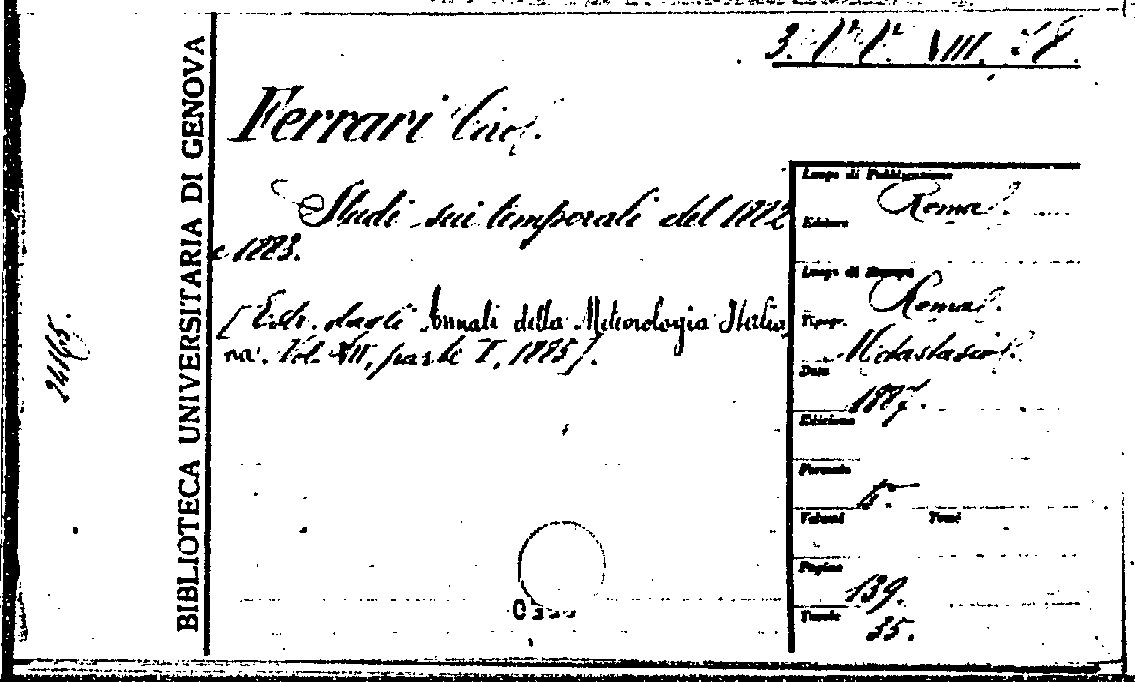 BIBLIOTECA UNIVERSITARIA DI GENOVA
24165.
VIII.
Ferrari Ciro.
Studi sui temporali del 1882
e 1883.
[Estr. dagli Annali della Meteorologia Italia
na. Vol. VII, parte I, 1885].
Luogo di Pubblicazione
Roma.
Editore
Luogo di Stampa
Roma.
Tipogr.
Metastasio.
Data
1887.
Edizione
Formato
Volumi Tomi
Pagine
139.
Tavole
35.